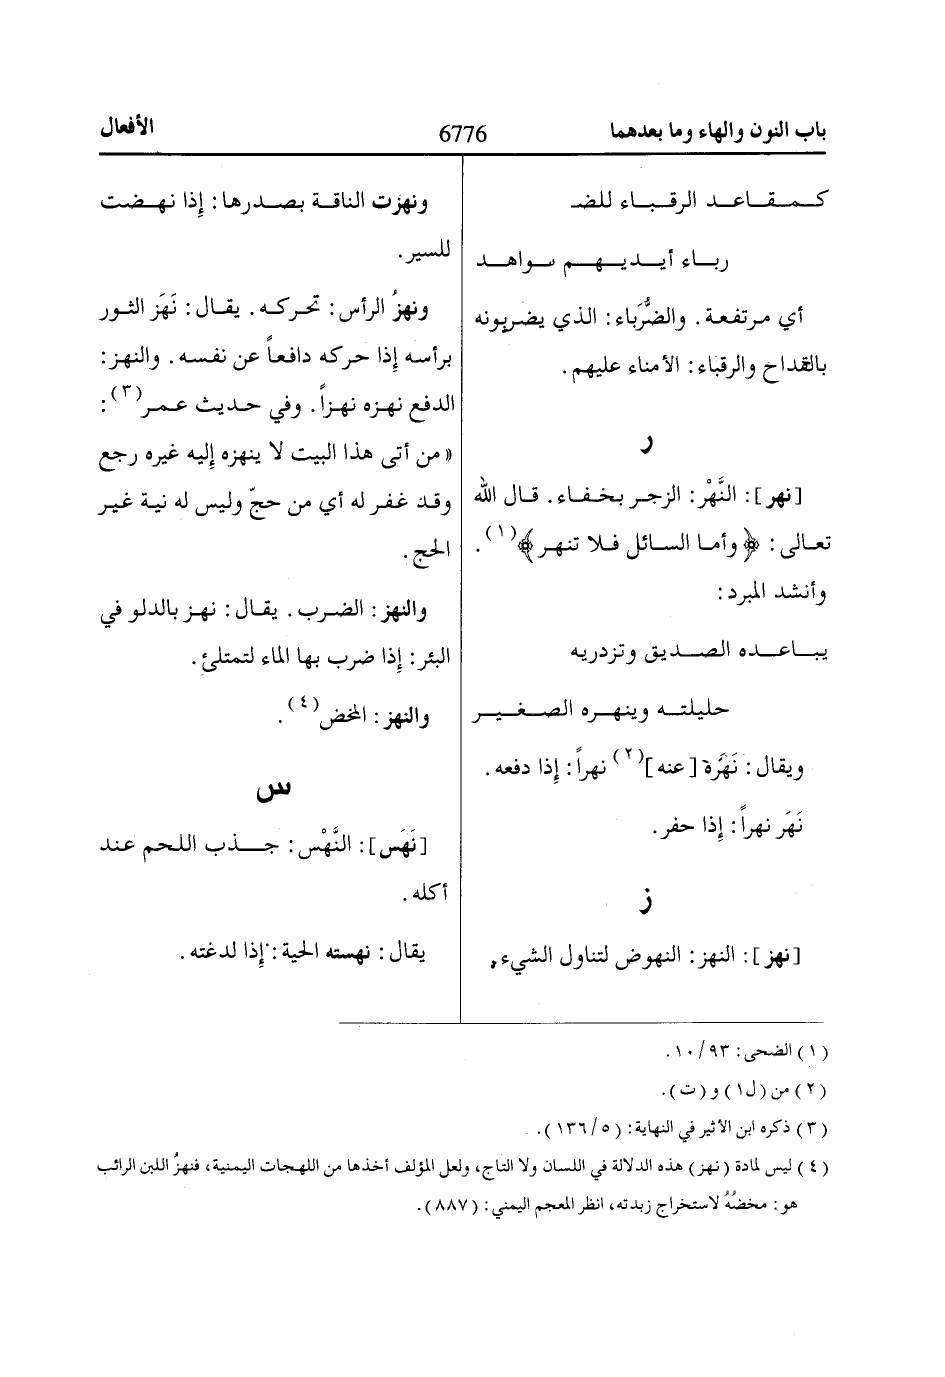 باب النون والهاء وما بعدهما 6776 الأفعال
كـمـقـاعـد الرقـبـاء للضـ
ربـاء أيـديـهـم سواهـد
أي مرتفعة. والضُّرَباء: الذي يضربونه
بالقداح والرقباء: الأمناء عليهم.
ر
[نهر]: النَّهْر: الزجر بخفاء. قال الله
تعالى: ﴿وأما السائل فلا تنهر﴾(١).
وأنشد المبرد:
يبـاعـده الصـديق وتزدريه
حليلتـه وينهـره الصـغـيـر
ويقال: نَهَرَه [عنه](٢) نهراً: إذا دفعه.
نَهَر نهراً: إذا حفر.
ز
[نهز]: النهز: النهوض لتناول الشيء،
ونهزت الناقة بصدرها: إذا نهضت
للسير.
ونهزُ الرأس: تحركه. يقال: نَهَز الثور
برأسه إذا حركه دافعاً عن نفسه. والنهز:
الدفع نهزه نهزاً. وفي حديث عمر(٣):
«من أتى هذا البيت لا ينهزه إليه غيره رجع
وقد غفر له أي من حجّ وليس له نية غير
الحج.
والنهز: الضرب. يقال: نهز بالدلو في
البئر: إذا ضرب بها الماء لتمتلئ.
والنهز: المخض(٤).
س
[نَهَس]: النَّهْس: جـذب اللحم عند
أكله.
يقال: نهسته الحية: إذا لدغته.
(١) الضحى: ٩٣/ ١٠.
(٢) من (ل١) و(ت).
(٣) ذكره ابن الأثير في النهاية: (٥/ ١٣٦).
(٤) ليس لمادة (نهز) هذه الدلالة في اللسان ولا التاج، ولعل المؤلف أخذها من اللهجات اليمنية، فنهزُ اللبن الرائب
هو: مخضُهُ لاستخراج زبدته، انظر المعجم اليمني: (٨٨٧).